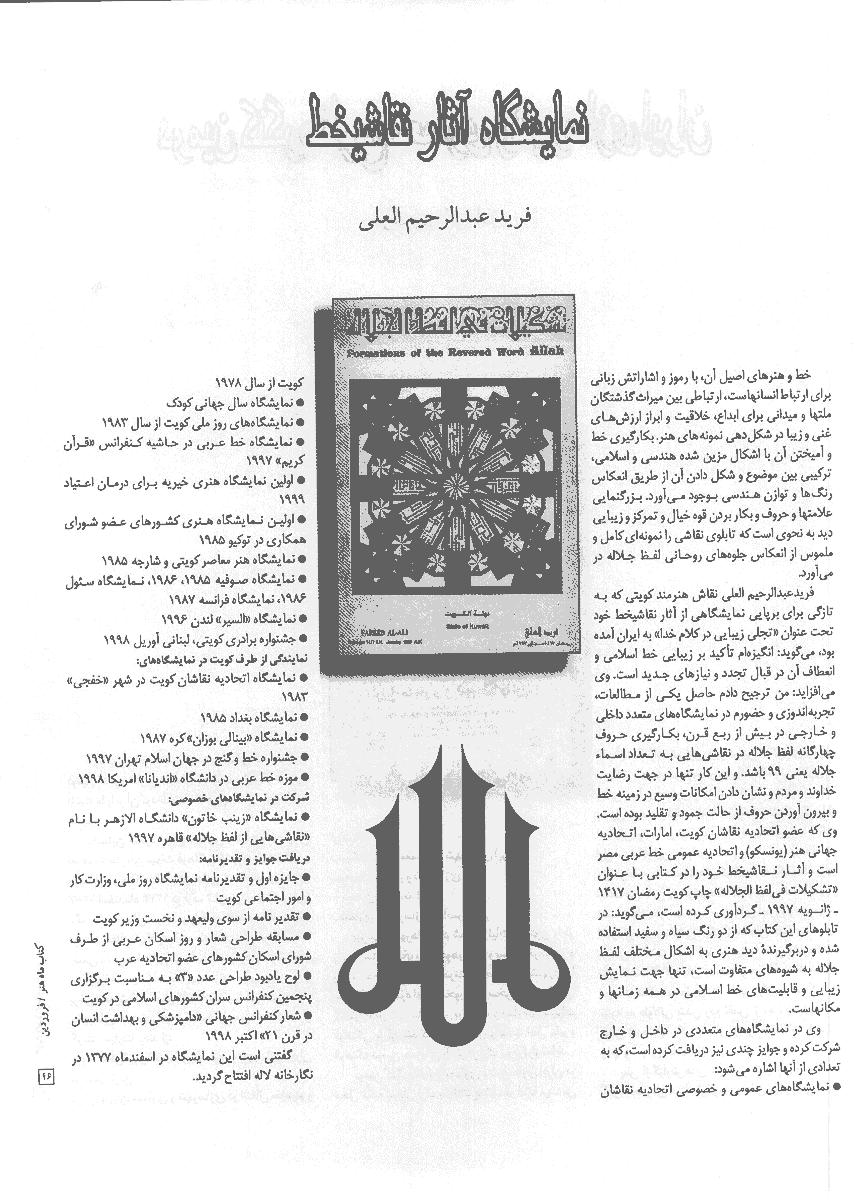 نمایشگاه آثار نقاشیخط
فرید عبدالرحیم العلی
خط و هنرهای اصیل آن، با رموز و اشاراتش زبانی
برای ارتباط انسانهاست، ارتباطی بین میراث گذشتگان
ملتها و میدانی برای ابداع، خلاقیت و ابراز ارزش‌های
غنی و زیبا در شکل‌دهی نمونه‌های هنر. بکارگیری خط
و آمیختن آن با اشکال مزین شده هندسی و اسلامی،
ترکیبی بین موضوع و شکل دادن آن از طریق انعکاس
رنگ‌ها و توازن هندسی بوجود می‌آورد. بزرگنمایی
علامتها و حروف و بکار بردن قوه خیال و تمرکز و زیبایی
دید به نحوی است که تابلوی نقاشی را نمونه‌ای کامل و
ملموس از انعکاس جلوه‌های روحانی لفظ جلاله در
می‌آورد.
فریدعبدالرحیم العلی نقاش هنرمند کویتی که به
تازگی برای برپایی نمایشگاهی از آثار نقاشیخط خود
تحت عنوان «تجلی زیبایی در کلام خدا» به ایران آمده
بود، می‌گوید: انگیزه‌ام تأکید بر زیبایی خط اسلامی و
انعطاف آن در قبال تجدد و نیازهای جدید است. وی
می‌افزاید: من ترجیح دادم حاصل یکی از مطالعات،
تجربه‌اندوزی و حضورم در نمایشگاه‌های متعدد داخلی
و خارجی در بیش از ربع قرن، بکارگیری حروف
چهارگانه لفظ جلاله در نقاشی‌هایی به تعداد اسماء
جلاله یعنی ۹۹ باشد. و این کار تنها در جهت رضایت
خداوند و مردم و نشان دادن امکانات وسیع در زمینه خط
و بیرون آوردن حروف از حالت جمود و تقلید بوده است.
وی که عضو اتحادیه نقاشان کویت، امارات، اتحادیه
جهانی هنر (یونسکو) و اتحادیه عمومی خط عربی مصر
است و آثار نقاشیخط خود را در کتابی با عنوان
«تشکیلات فی‌لفظ الجلاله» چاپ کویت رمضان ۱۴۱۷
ـ ژانویه ۱۹۹۷ ـ گردآوری کرده است، می‌گوید: در
تابلوهای این کتاب که از دو رنگ سیاه و سفید استفاده
شده و دربرگیرندهٔ دید هنری به اشکال مختلف لفظ
جلاله به شیوه‌های متفاوت است، تنها جهت نمایش
زیبایی و قابلیت‌های خط اسلامی در همه زمانها و
مکانهاست.
وی در نمایشگاه‌های متعددی در داخل و خارج
شرکت کرده و جوایز چندی نیز دریافت کرده است، که به
تعدادی از آنها اشاره می‌شود:
● نمایشگاه‌های عمومی و خصوصی اتحادیه نقاشان
تشكيلات في لفظ الجلالة
Formations of the Revered Word Allah
دولة الكويت
State of Kuwait
فريد العلي
FAREED AL-ALI
کویت از سال ۱۹۷۸
● نمایشگاه سال جهانی کودک
● نمایشگاه‌های روز ملی کویت از سال ۱۹۸۳
● نمایشگاه خط عربی در حاشیه کنفرانس «قرآن
کریم» ۱۹۹۷
● اولین نمایشگاه هنری خیریه برای درمان اعتیاد
۱۹۹۹
● اولین نمایشگاه هنری کشورهای عضو شورای
همکاری در توکیو ۱۹۸۵
● نمایشگاه هنر معاصر کویتی و شارجه ۱۹۸۵
● نمایشگاه صوفیه ۱۹۸۵، ۱۹۸۶، نمایشگاه سئول
۱۹۸۶، نمایشگاه فرانسه ۱۹۸۷
● نمایشگاه «السیر» لندن ۱۹۹۶
● جشنواره برادری کویتی، لبنانی آوریل ۱۹۹۸
نمایندگی از طرف کویت در نمایشگاه‌های:
● نمایشگاه اتحادیه نقاشان کویت در شهر «خفجی»
۱۹۸۳
● نمایشگاه بغداد ۱۹۸۵
● نمایشگاه «بینالی بوزان» کره ۱۹۸۷
● جشنواره خط و گنج در جهان اسلام تهران ۱۹۹۷
● موزه خط عربی در دانشگاه «اندیانا» امریکا ۱۹۹۸
شرکت در نمایشگاه‌های خصوصی:
● نمایشگاه «زینب خاتون» دانشگاه الازهر با نام
«نقاشی‌هایی از لفظ جلاله» قاهره ۱۹۹۷
دریافت جوایز و تقدیرنامه:
● جایزه اول و تقدیرنامه نمایشگاه روز ملی، وزارت کار
و امور اجتماعی کویت
● تقدیر نامه از سوی ولیعهد و نخست وزیر کویت
● مسابقه طراحی شعار و روز اسکان عربی از طرف
شورای اسکان کشورهای عضو اتحادیه عرب
● لوح یادبود طراحی عدد «۳» به مناسبت برگزاری
پنجمین کنفرانس سران کشورهای اسلامی در کویت
● شعار کنفرانس جهانی «دامپزشکی و بهداشت انسان
در قرن ۲۱» اکتبر ۱۹۹۸
گفتنی است این نمایشگاه در اسفندماه ۱۳۷۷ در
نگارخانه لاله افتتاح گردید.
کتاب ماه هنر / فروردین
۴۶